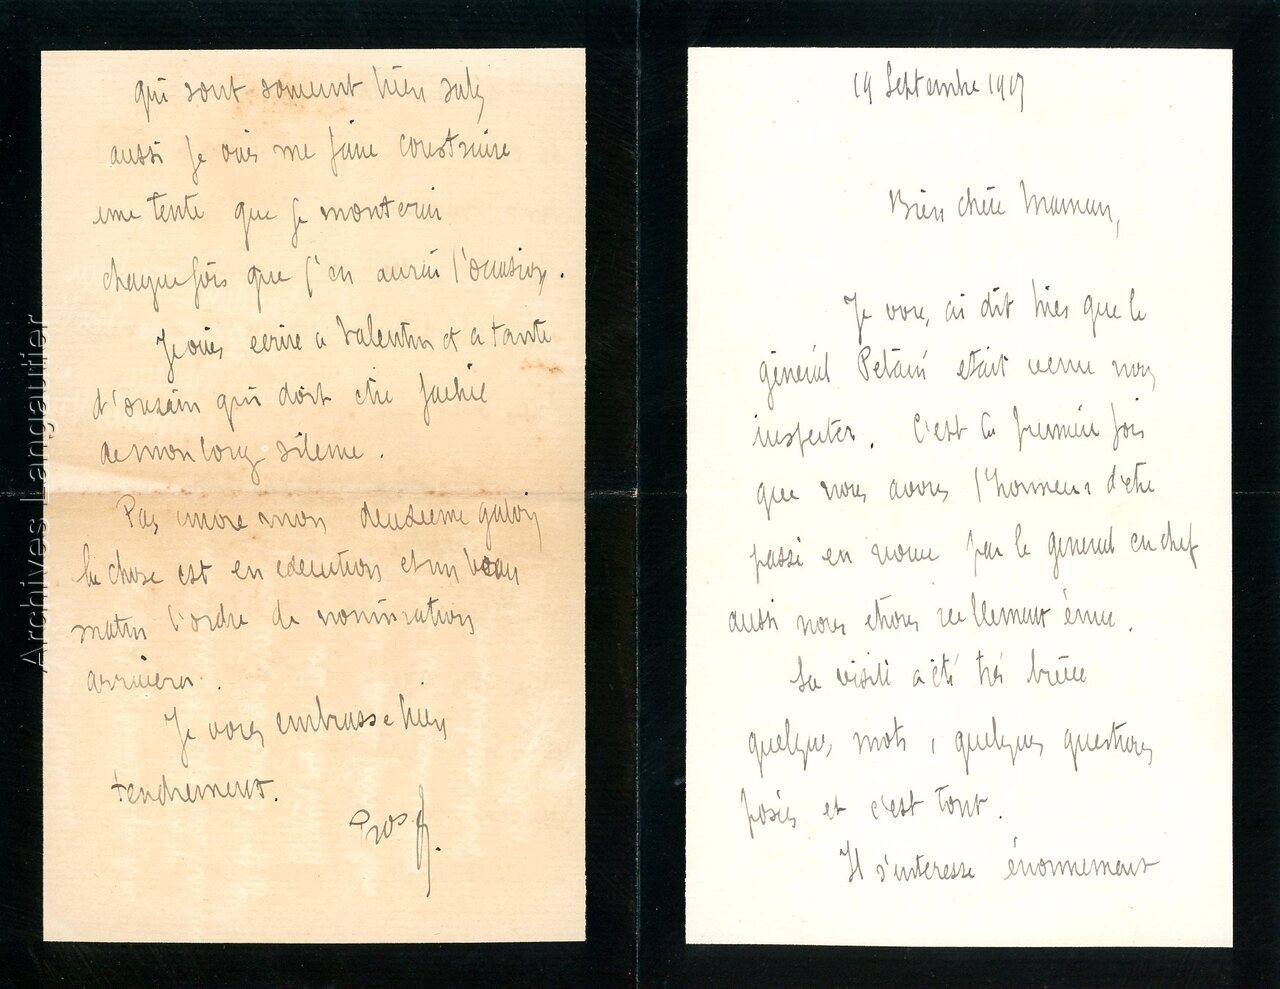 19 Septembre 1917
Bien chère Maman,
Je vous ai dit hier que le
général Pétain était venu nous
inspecter. C'est la première fois
que nous avons l'honneur d'être
passé en revue par le general en chef
aussi nous étions réellement ému.
Sa visite a été très brève
quelques mots, quelques questions
posées et c'est tout.
Il s'interesse énormement
qui sont souvent bien sales
aussi je vais me faire construire
une tente que je monterai
chaque fois que j'en aurai l'occasion.
Je vais ecrire a Valentin et a tante
qui doit être fachée
de mon long silence.
Pas encore mon deuxieme galon
la chose est en execution et un beau
matin l'ordre de nomination
arrivera.
Je vous embrasse bien
tendrement.
Archives Langautier